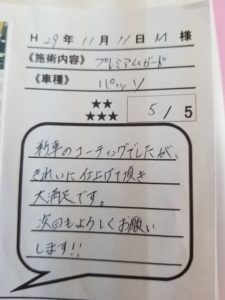 H 29年 11月 11日 M 様
《施術内容》 プレミアムガード
《車種》 パッソ
★★
★★★
5 / 5
新車のコーティングでしたが、
きれいに仕上げて頂き
大満足です。
次回もよろしくお願い
します!!